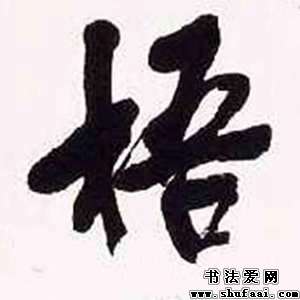 梧
书法爱网
www.shufaai.com